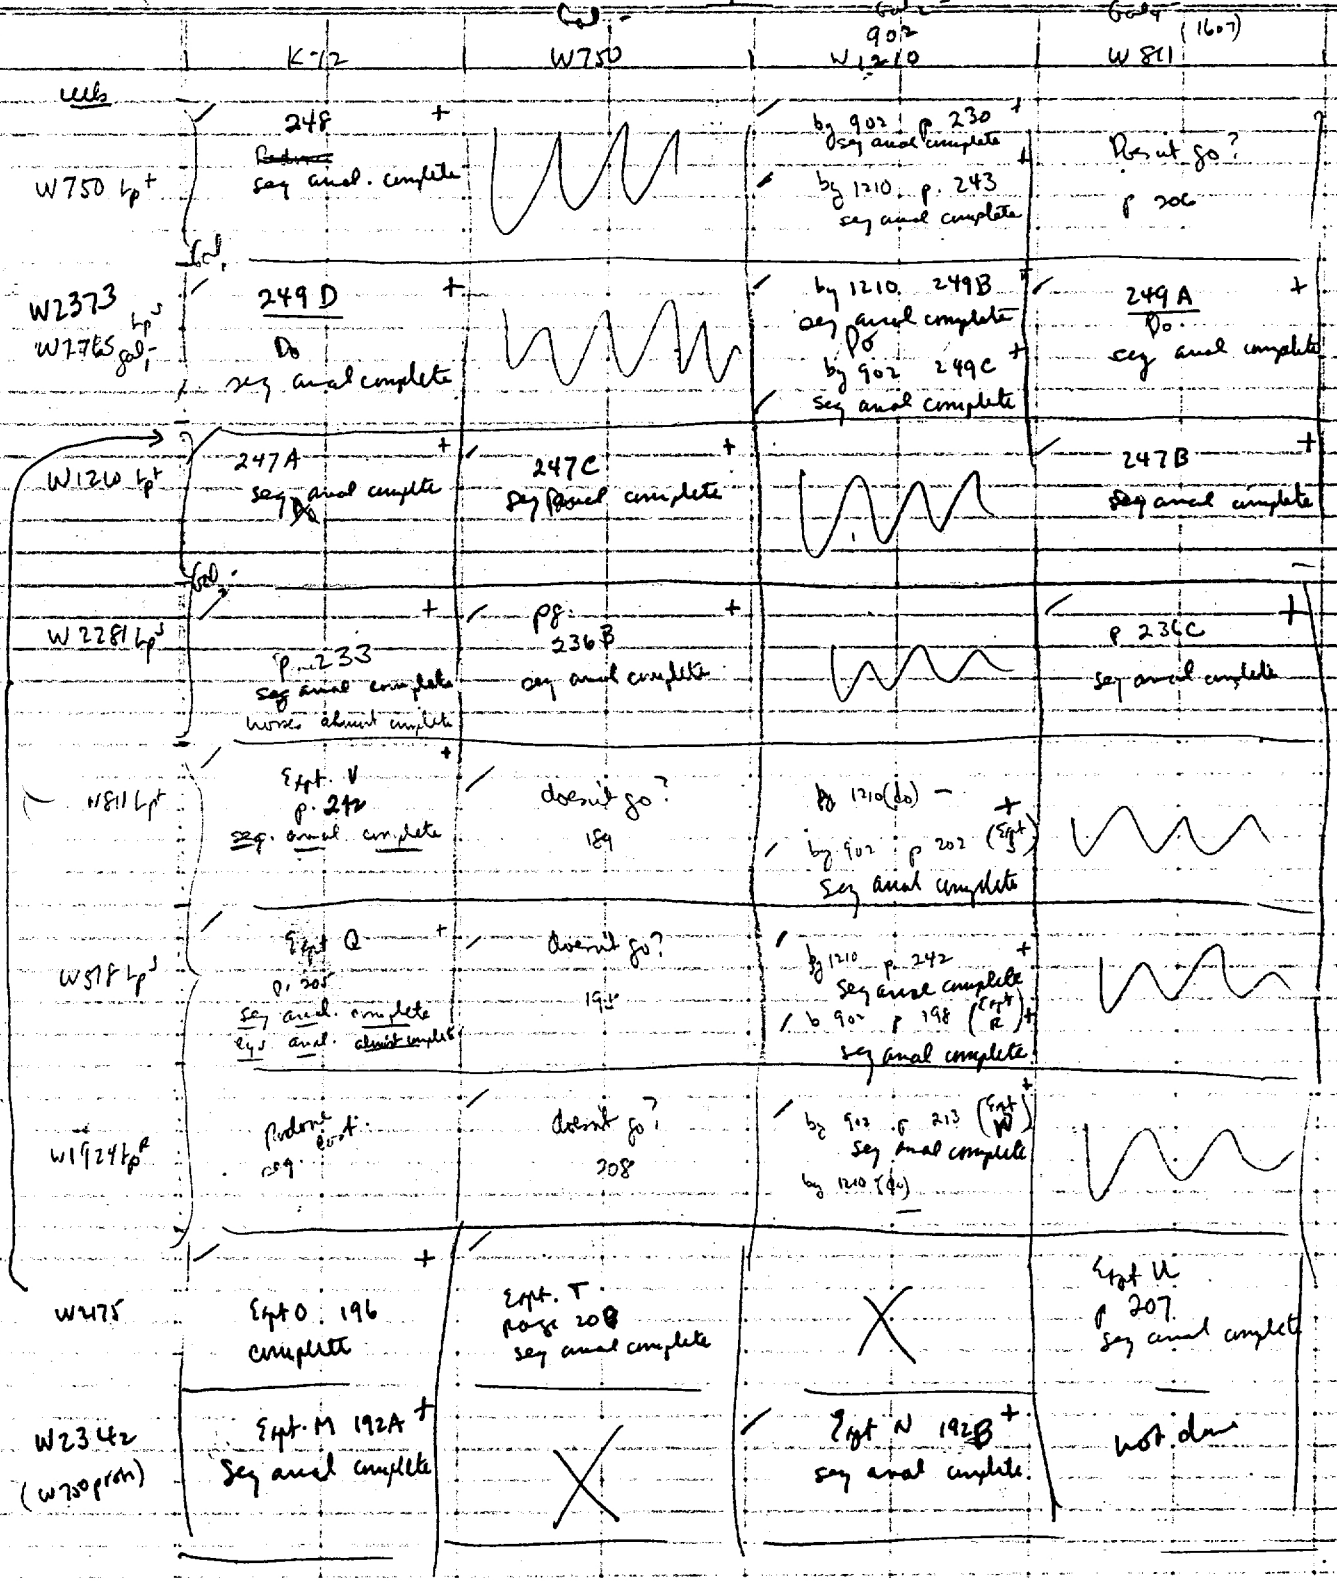 Gal- Gal2- Gal4- (1607)
902
K-12 W750 W1210 W811
W750 Lp+
248 +
seg anal. complete
by 902 p 230 +
seg anal complete
by 1210 p. 243 +
seg anal complete
Doesn't go?
p 206
Gal1-
W2373 Lps
W2765 gal1-
249 D +
Do
seg anal complete
by 1210 249B +
seg anal complete
Do
by 902 249C +
seg anal complete
249 A +
Do.
seg anal complete
W1210 Lp+
247A +
seg anal complete
247C +
seg anal complete
247B +
seg anal complete
Gal2-
W2281 Lps
p. 233 +
seg anal complete
almost complete
pg. +
236B
seg anal complete
p 236C +
seg anal complete
W811 Lp+
Expt. V +
p. 242
seg. anal complete
doesn't go?
189
by 1210 (do) -
by 902 p 202 (Expt S) +
seg anal complete
W518 Lps
Expt Q +
p. 205
seg anal. complete
anal. almost complete
doesn't go?
by 1210 p. 242 +
seg anal complete
b 902 p 198 (Expt R) +
seg anal complete
W1924 LpR
seg.
doesn't go?
208
by 902 p 213 (Expt W) +
seg anal complete
by 1210 (do)
W2175
Expt O. 196 +
complete
Expt. T
page 208
seg anal complete
X
Expt U
p 207
seg anal complete
W2342
(W750 prom)
Expt. M 192A +
Seg anal complete
X
Expt N 192B +
seg anal complete.
not done